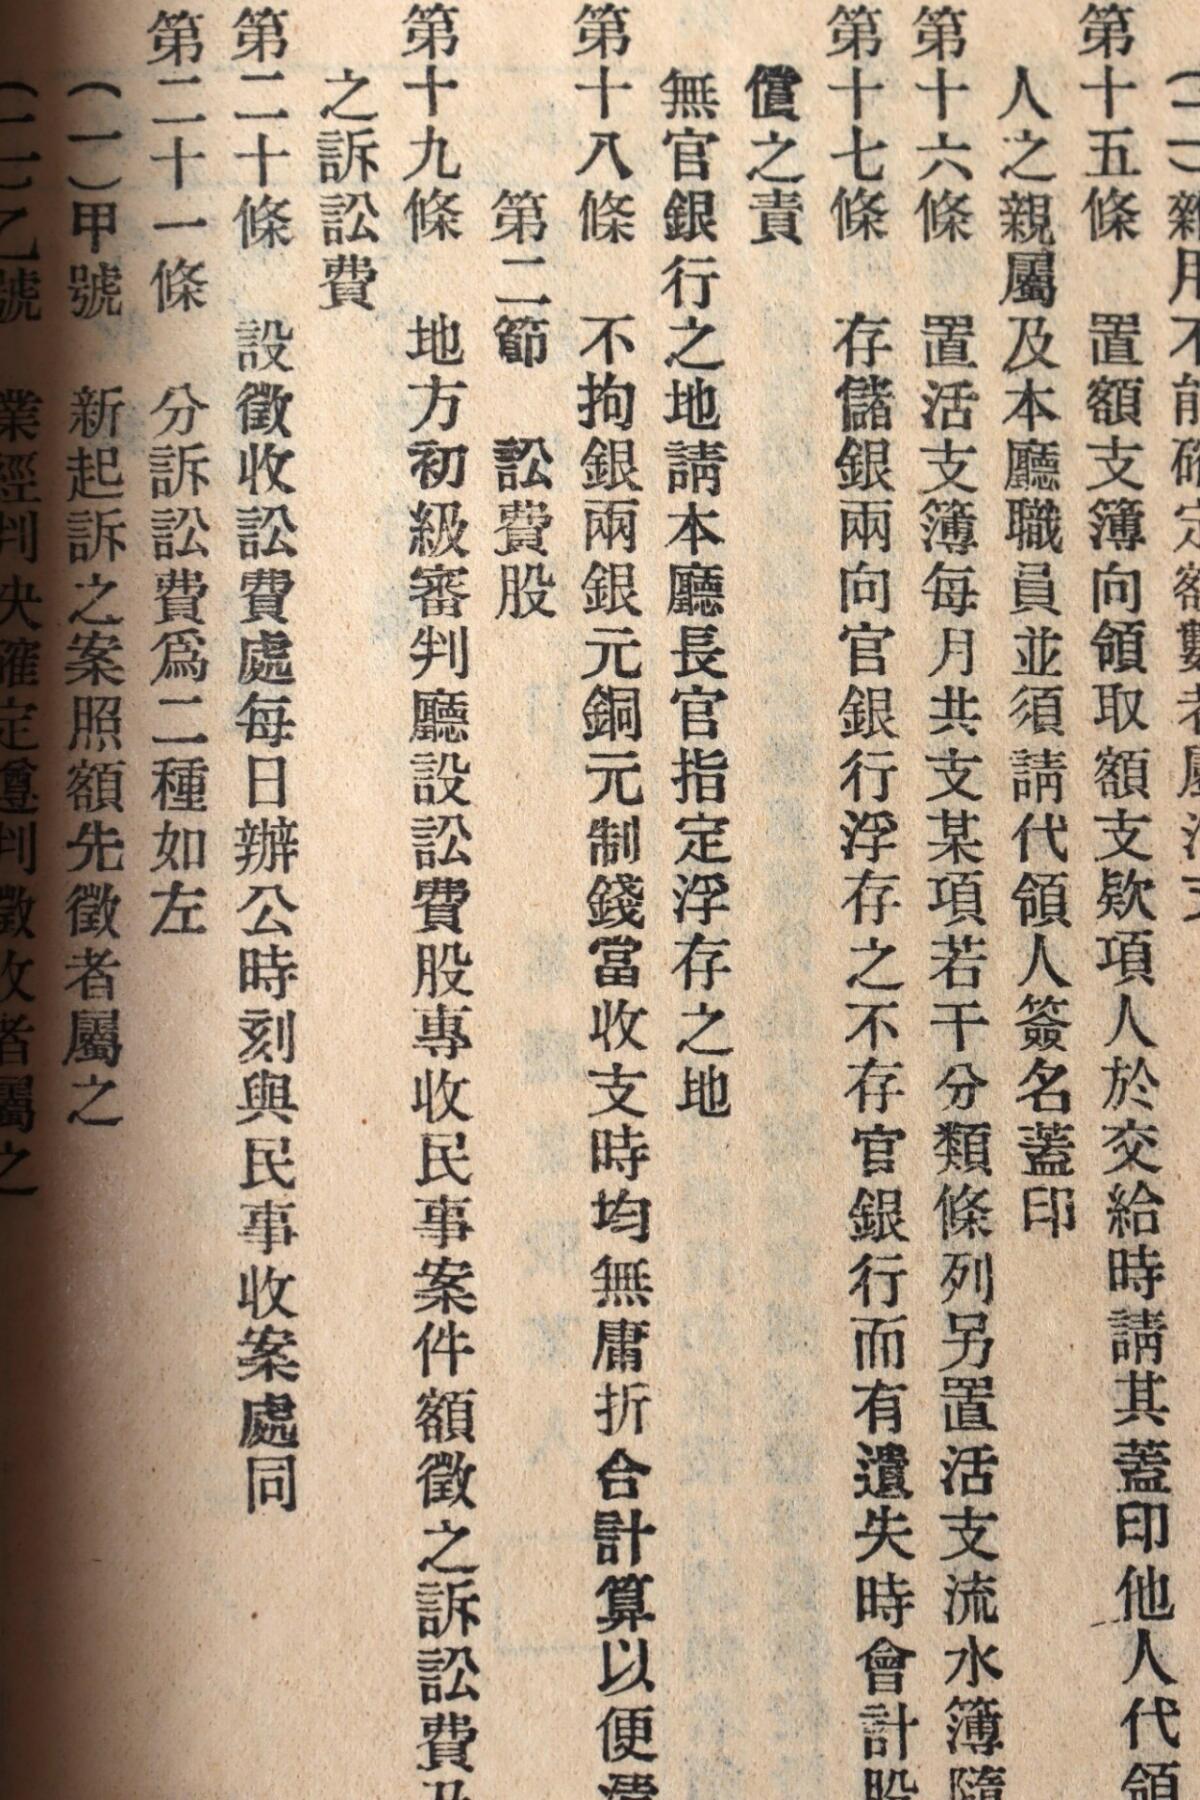 (二)雜用不能確定額數者屬活支
第十五條　置額支簿向領取額支欵項人於交給時請其蓋印他人代領
人之親屬及本廳職員並須請代領人簽名蓋印
第十六條　置活支簿每月共支某項若干分類條列另置活支流水簿隨
第十七條　存儲銀兩向官銀行浮存之不存官銀行而有遺失時會計股
償之責
無官銀行之地請本廳長官指定浮存之地
第十八條　不拘銀兩銀元銅元制錢當收支時均無庸折合計算以便
第二節　訟費股
第十九條　地方初級審判廳設訟費股專收民事案件額徵之訴訟費及
之訴訟費
第二十條　設徵收訟費處每日辦公時刻與民事收案處同
第二十一條　分訴訟費爲二種如左
(一)甲號　新起訴之案照額先徵者屬之
(二)乙號　業經判決確定遵判徵收者屬之